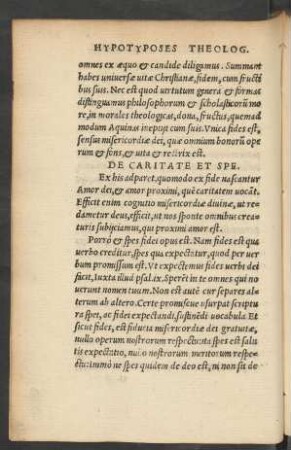 HYPOTYPOSES THEOLOG.
omnes ex æquo & candide diligamus. Summam
habes universæ uitæ Christianæ, fidem, cum fructi
bus suis. Nec est quod uertutum genera & formas
distinguamus philosophorum & scholasticorū mo
re, in morales theologicas, dona, fructus, quemad
modum Aquinas ineptijt cum suis. Vnica fides est,
sensus misericordiæ dei, quæ omnium bonorū ope
rum & fons, & uita & rectrix est.
DE CARITATE ET SPE.
Ex his adparet, quomodo ex fide nascantur
Amor dei, & amor proximi, quē caritatem uocāt.
Efficit enim cognitio misericordiæ diuinæ, ut re
dametur deus, efficit, ut nos sponte omnibus crea-
turis subijciamus, qui proximi amor est.
Porrò & spes fidei opus est. Nam fides est qua
uerbo creditur, spes qua expectatur, quod per uer
bum promissum est. Vt expectemus fides uerbi dei
facit, iuxta illud psal.ix. Sperēt in te omnes qui no
uerunt nomen tuum. Non est autē cur separes al-
terum ab altero. Certe promiscue usurpat scriptu
ra spes, ac fidei expectandi, sustinēdi uocabula Et
sicut fides, est fiducia misericordiæ dei gratuitæ,
nullo operum nostrorum respectu: ita spes est salu
tis expectatio, nullo nostrorum meritorum respe-
ctu: immò ne spes quidem de deo est, ni non sit de